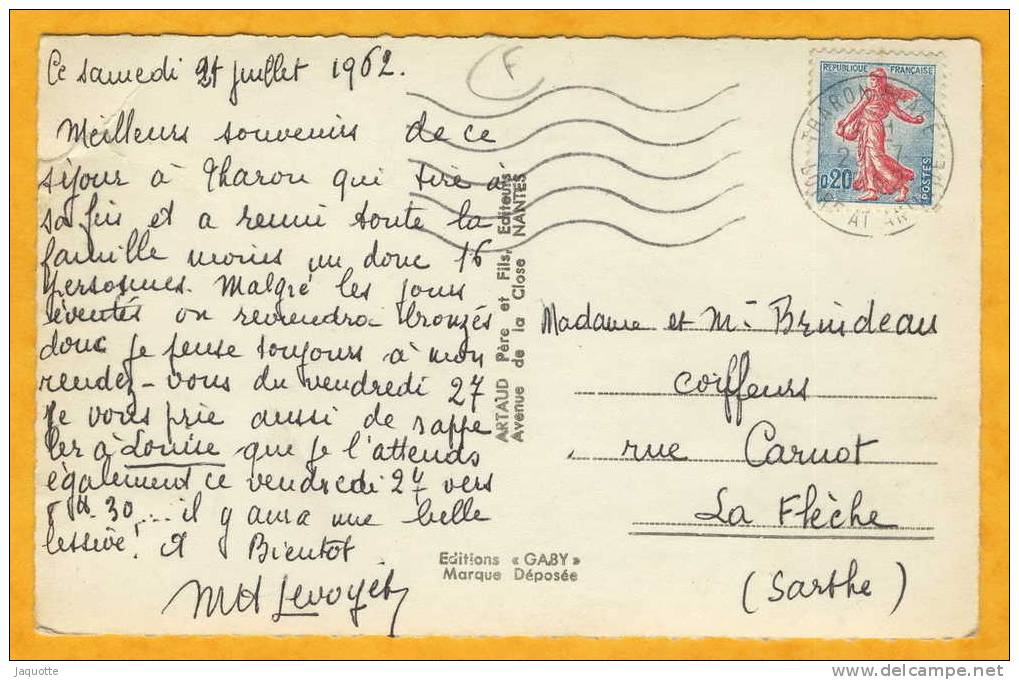 Ce samedi 21 juillet 1962.
Meilleurs souvenirs de ce
séjour à Tharon qui tire à
sa fin et a reuni toute la
famille moins un donc 16
personnes. Malgré les jours
éventés on reviendra bronzés
donc je pense toujours à mon
rendez-vous du vendredi 27
Je vous prie aussi de rappe
ler à Louise que je l'attends
également ce vendredi 27 vers
8h.30,... il y aura une belle
lessive! A Bientot
MH Levoyer
F
ARTAUD Père et Fils, Editeurs
Avenue de la Close NANTES
Editions « GABY »
Marque Déposée
REPUBLIQUE FRANÇAISE
0,20
POSTES
THARON PLAGE
LOIRE ATLANTIQUE
Madame et Mr Brindeau
coiffeurs
rue Carnot
La Flèche
(Sarthe)
Jaquotte
www.delcampe.net